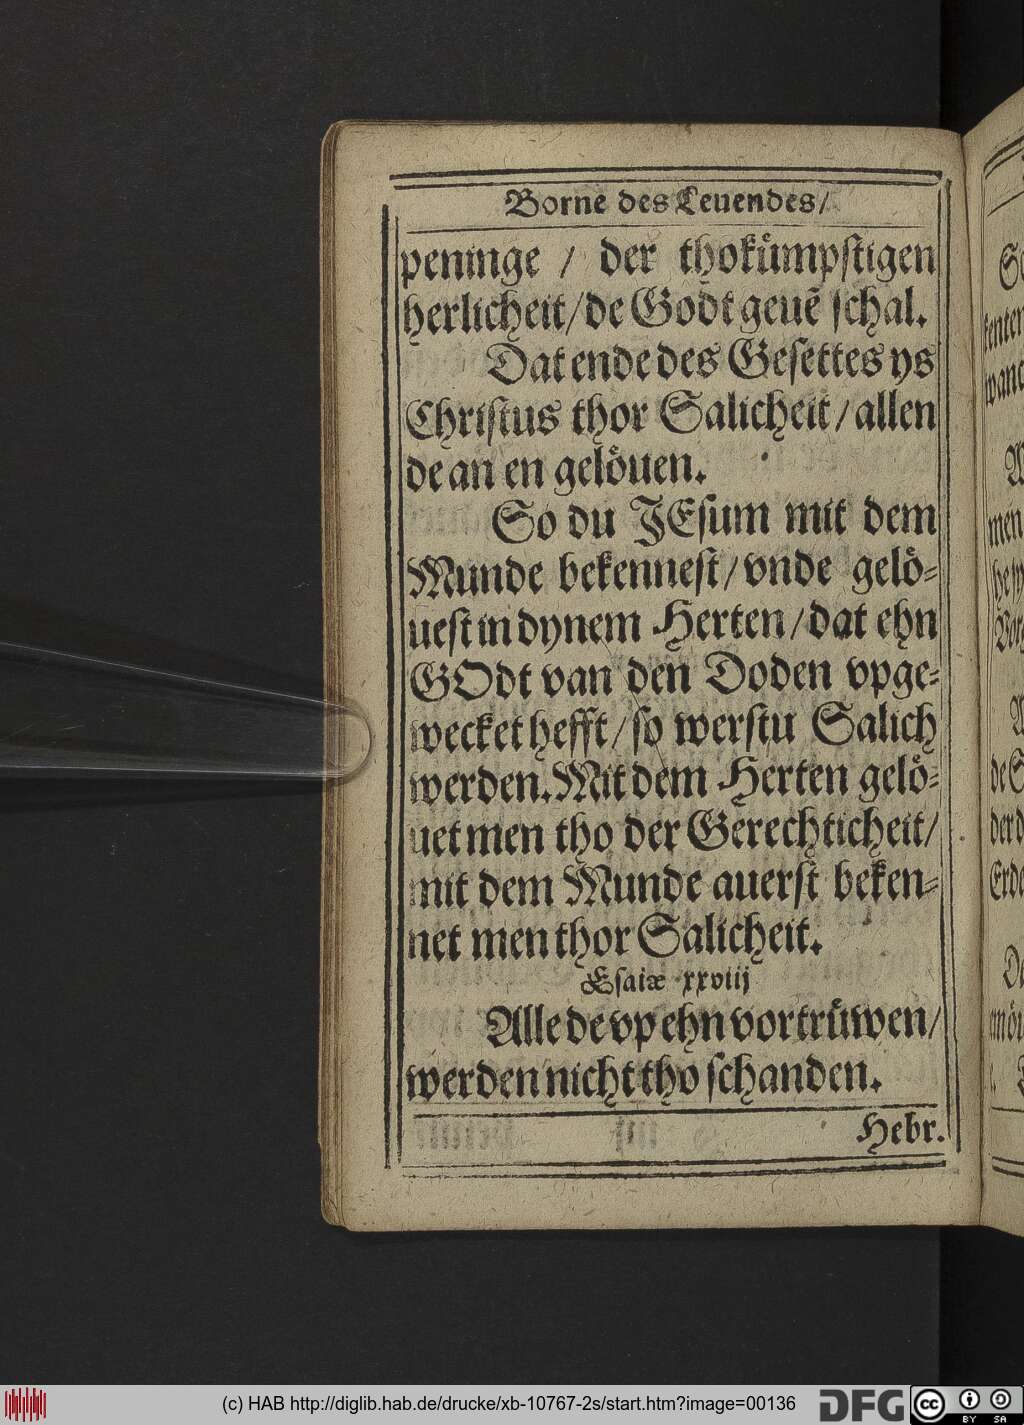 Borne des Leuendes/
peninge / der thokuͤmpſtigen
herlicheit/de Godt geuē ſchal.
Dat ende des Geſettes ys
Chriſtus thor Salicheit/allen
de an en geloͤuen.
So du JEſum mit dem
Munde bekenneſt/vnde geloͤ⸗
ueſt in dynem Herten/dat ehn
GOdt van den Doden vpge⸗
wecket hefft/ſo werſtu Salich
werden.Mit dem Herten geloͤ⸗
uet men tho der Gerechticheit/
mit dem Munde auerſt beken⸗
net men thor Salicheit.
Eſaiæ xxviij
Alle de vp ehn vortruͤwen/
werden nicht tho ſchanden.
Hebr.
(c) HAB http://diglib.hab.de/drucke/xb-10767-2s/start.htm?image=00136
DFG
cc
BY SA